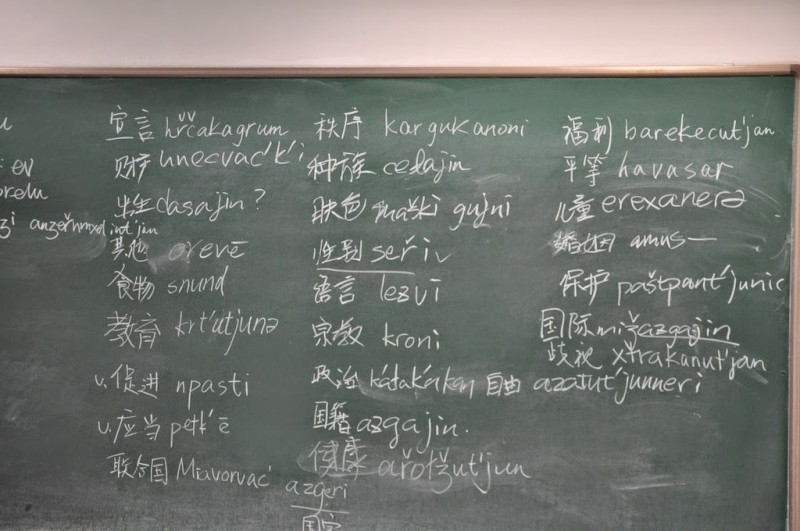 : ev
宣言 hřčakagrum
财产 unecvac'k'i
出生 dasajin?
其他 orevē
食物 snund
教育 krt'utjunə
v. 促进 npasti
v. 应当 petk'ē
联合国 Miavorvac'
秩序 kargukanoni
种族 cełajin
肤色 maški gujni
性别 seřiv
语言 lezvi
宗教 kroni
政治 kałakakan
自由 azatut'junneri
国籍 azgajin.
健康 ařołžut'jun
azgeri
福利 barekecut'jan
平等 havasar
儿童 erexanerə
婚姻 amus—
保护 paštpant'junic
国际 mižazgajin
歧视 xtrakanut'jan